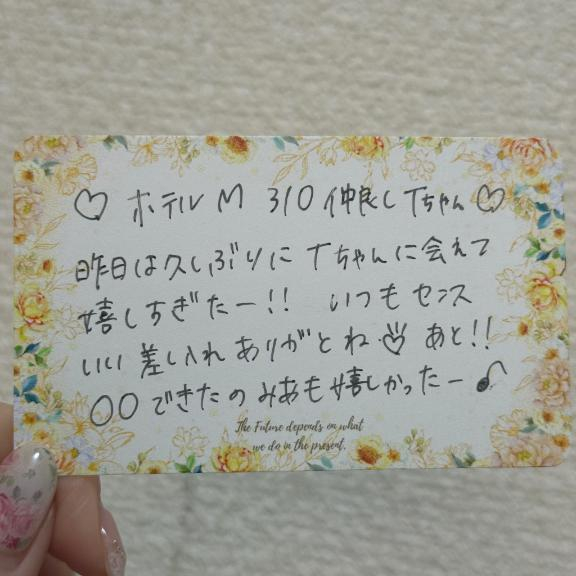 ♡ ホテル M 310 仲良し Tちゃん ♡
昨日は久しぶりに Tちゃんに会えて
嬉しすぎたー!! いつもセンス
いい差し入れありがとね♡ あと!!
〇〇できたのみあも嬉しかったー
The Future depends on what
we do in the present.